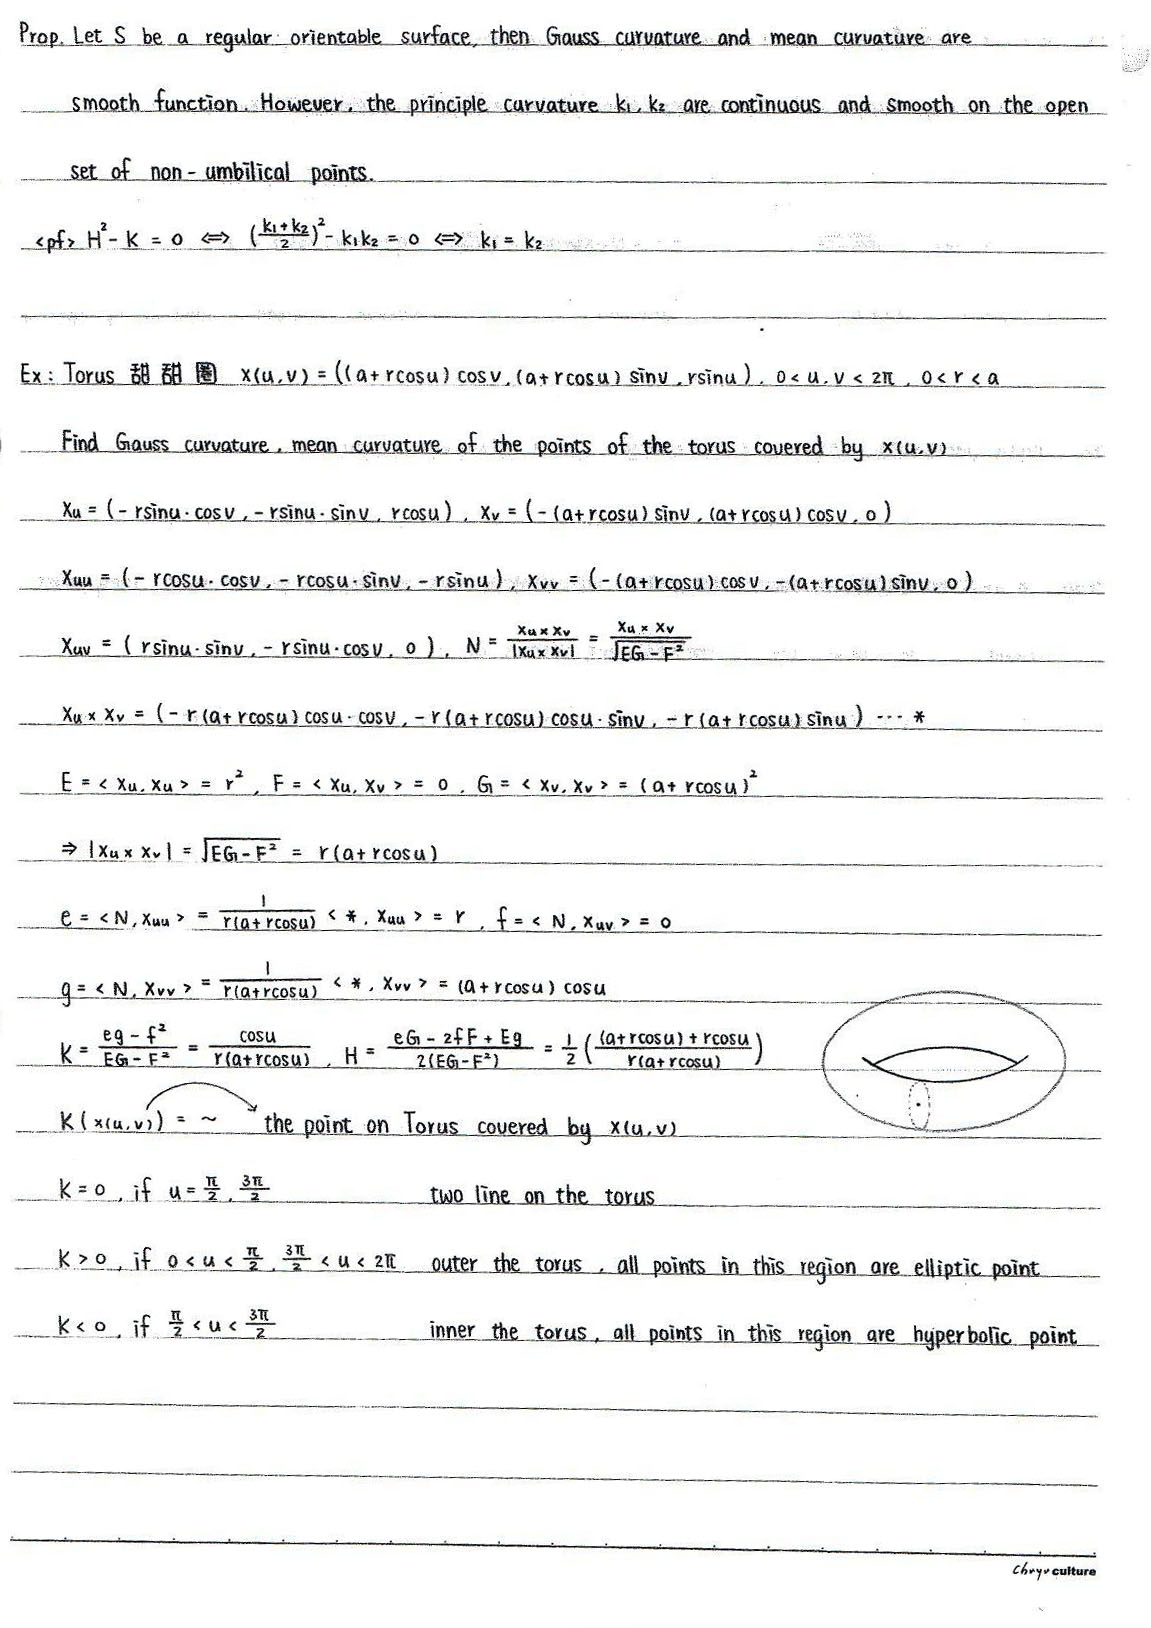 Prop. Let S be a regular orientable surface, then Gauss curvature and mean curvature are
smooth function. However, the principle curvature k₁, k₂ are continuous and smooth on the open
set of non-umbilical points.
<pf> H² - K = 0 ⇔ ((k₁+k₂)/2)² - k₁k₂ = 0 ⇔ k₁ = k₂
Ex: Torus 甜甜圈 x(u,v) = ((a+rcosu)cosv, (a+rcosu)sinv, rsinu), 0<u,v<2π, 0<r<a
Find Gauss curvature, mean curvature of the points of the torus covered by x(u,v)
Xu = (-rsinu·cosv, -rsinu·sinv, rcosu), Xv = (-(a+rcosu)sinv, (a+rcosu)cosv, 0)
Xuu = (-rcosu·cosv, -rcosu·sinv, -rsinu), Xvv = (-(a+rcosu)cosv, -(a+rcosu)sinv, 0)
Xuv = (rsinu·sinv, -rsinu·cosv, 0), N = (Xu × Xv)/|Xu × Xv| = (Xu × Xv)/√(EG-F²)
Xu × Xv = (-r(a+rcosu)cosu·cosv, -r(a+rcosu)cosu·sinv, -r(a+rcosu)sinu) ··· *
E = <Xu, Xu> = r², F = <Xu, Xv> = 0, G = <Xv, Xv> = (a+rcosu)²
⇒ |Xu × Xv| = √(EG-F²) = r(a+rcosu)
e = <N, Xuu> = 1/(r(a+rcosu)) <*, Xuu> = r, f = <N, Xuv> = 0
g = <N, Xvv> = 1/(r(a+rcosu)) <*, Xvv> = (a+rcosu)cosu
K = (eg-f²)/(EG-F²) = cosu/(r(a+rcosu)), H = (eG-2fF+Eg)/(2(EG-F²)) = 1/2 (((a+rcosu)+rcosu)/(r(a+rcosu)))
K(x(u,v)) = ~ the point on Torus covered by x(u,v)
K=0, if u = π/2, 3π/2 two line on the torus
K>0, if 0<u<π/2, 3π/2<u<2π outer the torus, all points in this region are elliptic point
K<0, if π/2<u<3π/2 inner the torus, all points in this region are hyperbolic point
Chuyu culture